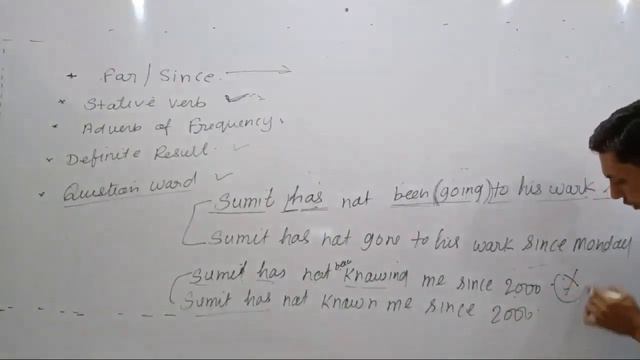 For/Since
Stative verb
Adverb of Frequency.
Definite Result.
Question word
Sumit has not been (going) to his work
Sumit has not gone to his work since monday
Sumit has not been knowing me since 2000.
Sumit has not known me since 2000.